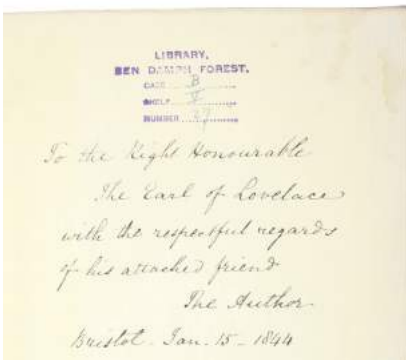 LIBRARY,
BEN DAMPH FOREST.
CASE B
SHELF
NUMBER 37
To the Right Honourable
The Earl of Lovelace
with the respectful regards
of his attached friend
The Author
Bristol. Jan. 15 - 1844